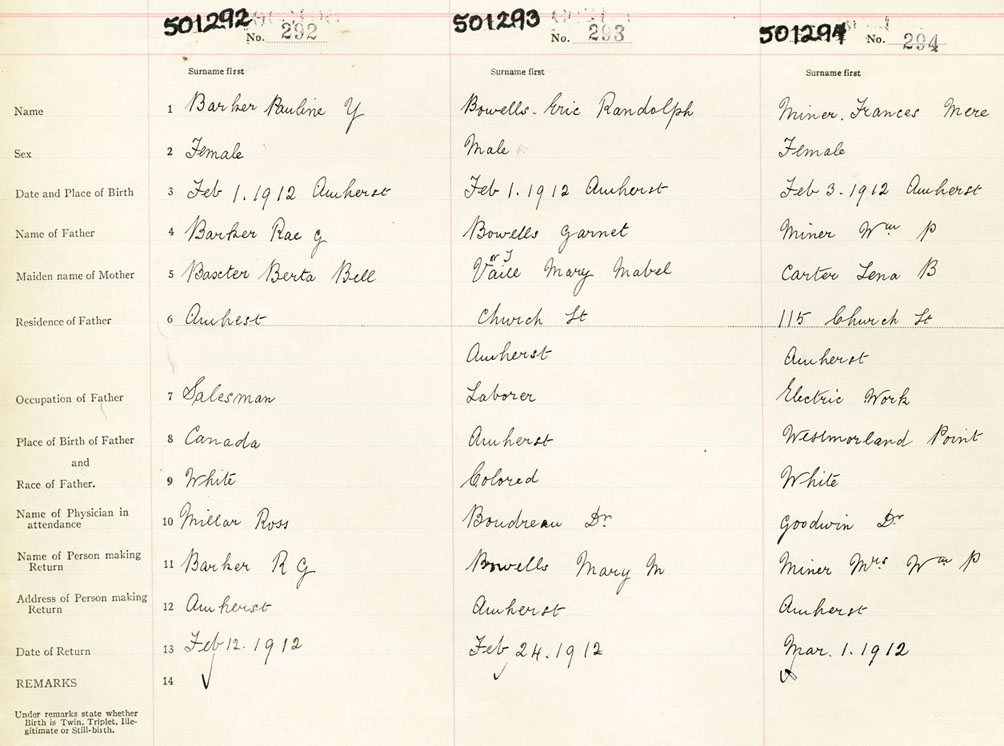 501292 501293 501294
No. 292 No. 293 No. 294
Surname first Surname first Surname first
Name 1 Barker Pauline Y Bowells. Eric Randolph Miner. Frances Mere
Sex 2 Female Male Female
Date and Place of Birth 3 Feb 1. 1912 Amherst Feb 1. 1912 Amherst Feb 3. 1912 Amherst
Name of Father 4 Barker Rae G Bowells Garnet Miner Wm P
or J
Maiden name of Mother 5 Baxter Berta Bell Vaile Mary Mabel Carter Lena B
Residence of Father 6 Amhest Church St 115 Church St
Amherst Amherst
Occupation of Father 7 Salesman Laborer Electric Work
Place of Birth of Father 8 Canada Amherst Westmorland Point
and
Race of Father. 9 White Colored White
Name of Physician in
attendance 10 Millar Ross Boudreau Dr Goodwin Dr
Name of Person making
Return 11 Barker R G Bowells Mary M Miner Mrs Wm P
Address of Person making
Return 12 Amherst Amherst Amherst
Date of Return 13 Feb 12. 1912 Feb 24. 1912 Mar. 1. 1912
REMARKS 14
Under remarks state whether
Birth is Twin, Triplet, Ille-
gitimate or Still-birth.